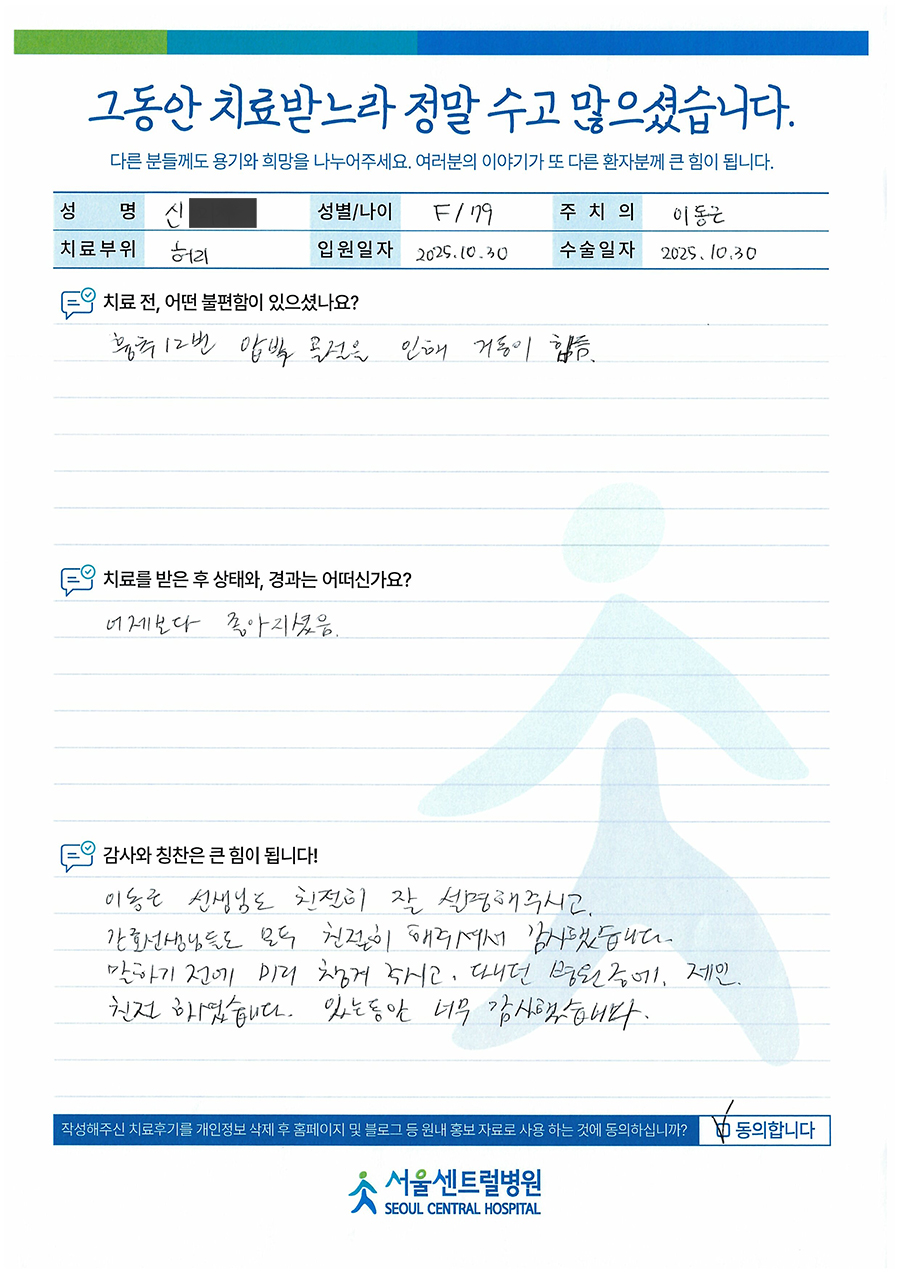 그동안 치료받느라 정말 수고 많으셨습니다.
다른 분들께도 용기와 희망을 나누어주세요. 여러분의 이야기가 또 다른 환자분께 큰 힘이 됩니다.
성 명 신 성별/나이 F/79 주 치 의 이동근
치료부위 허리 입원일자 2025.10.30 수술일자 2025.10.30
치료 전, 어떤 불편함이 있으셨나요?
흉추12번 압박 골절을 인해 거동이 힘듬.
치료를 받은 후 상태와, 경과는 어떠신가요?
어제보다 좋아지셨음.
감사와 칭찬은 큰 힘이 됩니다!
이동근 선생님도 친절히 잘 설명해주시고.
간호선생님들도 모두 친절히 해주셔서 감사했습니다.
말하기 전에 미리 챙겨 주시고. 다니던 병원중에. 제일.
친절 하셨습니다. 있는동안 너무 감사했습니다.
작성해주신 치료후기를 개인정보 삭제 후 홈페이지 및 블로그 등 원내 홍보 자료로 사용 하는 것에 동의하십니까? 동의합니다
서울센트럴병원
SEOUL CENTRAL HOSPITAL